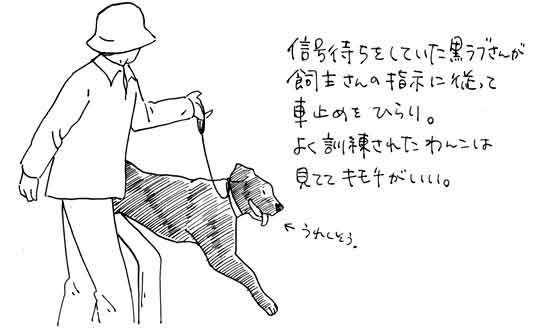 信号待ちをしていた黒ラブさんが
飼主さんの指示に従って
車止めをひらり。
よく訓練されたわんこは
見ててキモチがいい。
←うれしそう。